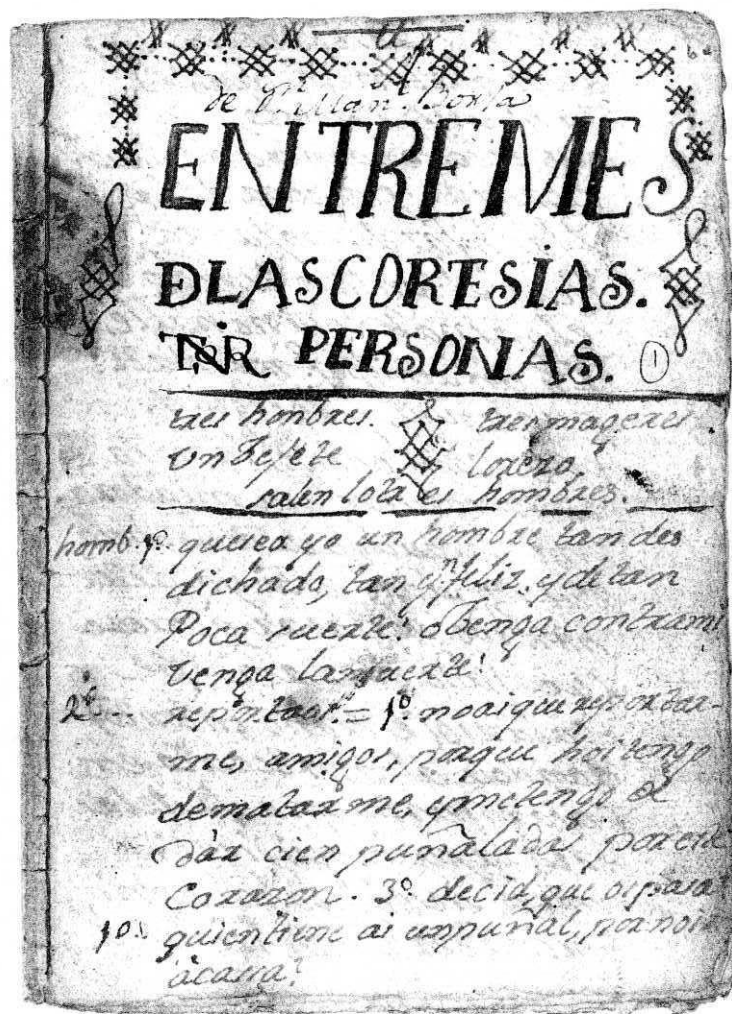 de Juan Borja
ENTREMES
DLAS CORESIAS.
PERSONAS. 1
tres honbres. tres mugeres
un Vejete lorezo
salen lotres hombres.
homb. 1º quesea yo un hombre tan des
dichado, tan ynfeliz, y de tan
Poca suerte! o benga contrami
venga lamuerte!
2º.... reportaos. = 1º. noaique reportar-
me, amigos, porque hoi tengo
dematarme, ymetengo d
dar cien puñaladas por este
Corazon. 3º. decid, que ospasa?
1º. quientiene ai unpuñal, pornoir
àcasa?